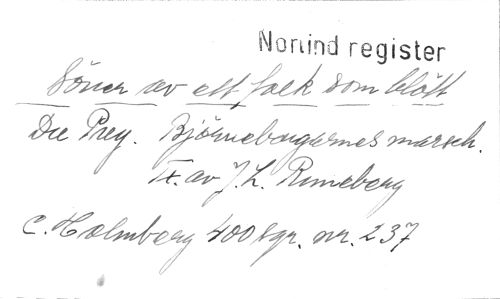 Nonind register
Söner av ett folk som blött
Du Prey. Björneborgarnes marsch.
Tx. av J. L. Runeberg
C. Holmberg 400 sgr. nr. 237